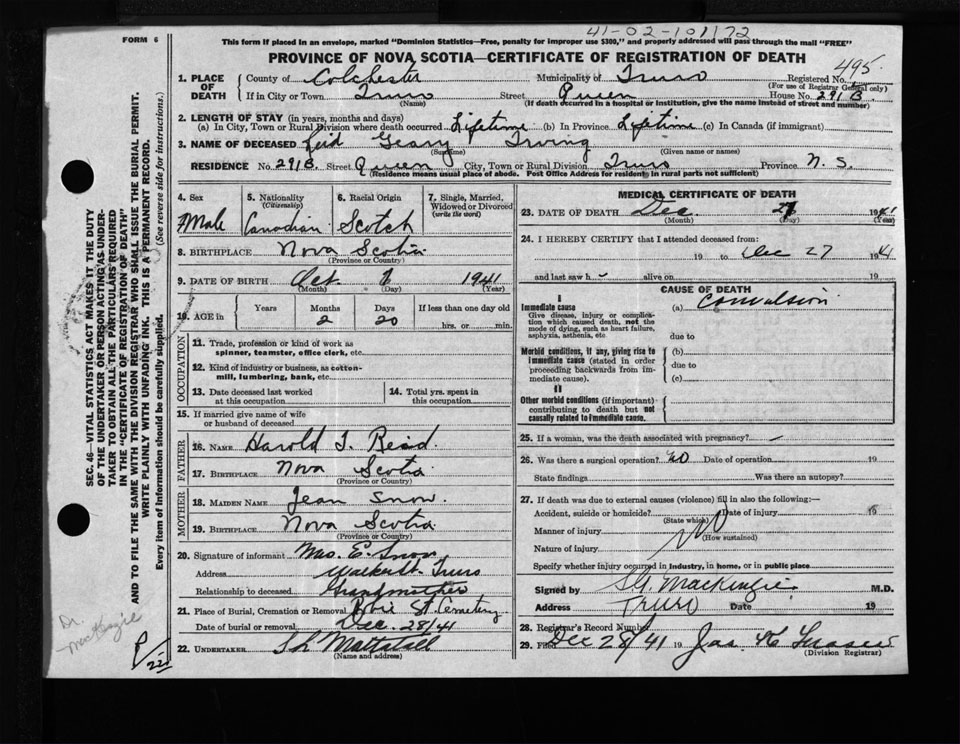 41-02-101172
FORM 6
This form if placed in an envelope, marked "Dominion Statistics—Free, penalty for improper use $300," and properly addressed will pass through the mail "FREE"
PROVINCE OF NOVA SCOTIA—CERTIFICATE OF REGISTRATION OF DEATH
495
1. PLACE OF DEATH County of Colchester Municipality of Truro Registered No.
(For use of Registrar General only)
If in City or Town Truro Street Queen House No. 291B
(Name) (If death occurred in a hospital or institution, give the name instead of street and number)
2. LENGTH OF STAY (in years, months and days)
(a) In City, Town or Rural Division where death occurred Lifetime (b) In Province Lifetime (c) In Canada (if immigrant)
3. NAME OF DECEASED Reid Geary Irving
(Surname) (Given name or names)
RESIDENCE No. 291B Street Queen City, Town or Rural Division Truro Province N. S.
(Residence means usual place of abode. Post Office Address for residents in rural parts not sufficient)
4. Sex 5. Nationality (Citizenship) 6. Racial Origin 7. Single, Married, Widowed or Divorced (write the word)
Male Canadian Scotch
8. BIRTHPLACE Nova Scotia
(Province or Country)
9. DATE OF BIRTH Oct. 1941
(Month) (Day) (Year)
10. AGE in Years Months Days If less than one day old
2 20 hrs. or min.
OCCUPATION
11. Trade, profession or kind of work as
spinner, teamster, office clerk, etc.
12. Kind of industry or business, as cotton-
mill, lumbering, bank, etc.
13. Date deceased last worked
at this occupation
14. Total yrs. spent in
this occupation
15. If married give name of wife
or husband of deceased
FATHER
16. NAME Harold I. Reid.
17. BIRTHPLACE Nova Scotia
(Province or Country)
MOTHER
18. MAIDEN NAME Jean Snow.
19. BIRTHPLACE Nova Scotia
(Province or Country)
20. Signature of informant Mrs. E. Snow
Address Walker St. Truro
Relationship to deceased Grandmother
21. Place of Burial, Cremation or Removal Robie St. Cemetery
Date of burial or removal Dec. 28/41
22. UNDERTAKER
(Name and address)
MEDICAL CERTIFICATE OF DEATH
23. DATE OF DEATH Dec. 27 1941
(Month) (Day) (Year)
24. I HEREBY CERTIFY that I attended deceased from:
19 to Dec 27 1941
and last saw h alive on 19
CAUSE OF DEATH
I
Immediate cause (a) Convulsion
Give disease, injury or complica-
tion which caused death, not the
mode of dying, such as heart failure,
asphyxia, asthenia, etc.
due to
Morbid conditions, if any, giving rise to
immediate cause (stated in order
proceeding backwards from im-
mediate cause).
(b)
due to
(c)
II
Other morbid conditions (if important)
contributing to death but not
causally related to immediate cause.
25. If a woman, was the death associated with pregnancy? —
26. Was there a surgical operation? No Date of operation 19
State findings Was there an autopsy?
27. If death was due to external causes (violence) fill in also the following:—
Accident, suicide or homicide? Date of injury 19
(State which)
Manner of injury No
(How sustained)
Nature of injury
Specify whether injury occurred in industry, in home, or in public place
Signed by S.G. MacKenzie M.D.
Address Truro Date 19
28. Registrar's Record Number
29. Filed Dec 28/41 19
(Division Registrar)
SEC. 46—VITAL STATISTICS ACT MAKES IT THE DUTY
OF THE UNDERTAKER OR PERSON ACTING AS UNDER-
TAKER TO OBTAIN ALL THE PARTICULARS REQUIRED
IN THE "CERTIFICATE OF REGISTRATION OF DEATH"
AND TO FILE THE SAME WITH THE DIVISION REGISTRAR WHO SHALL ISSUE THE BURIAL PERMIT.
WRITE PLAINLY WITH UNFADING INK. THIS IS A PERMANENT RECORD.
Every item of information should be carefully supplied. (See reverse side for instructions.)
Dr.
MacKenzie